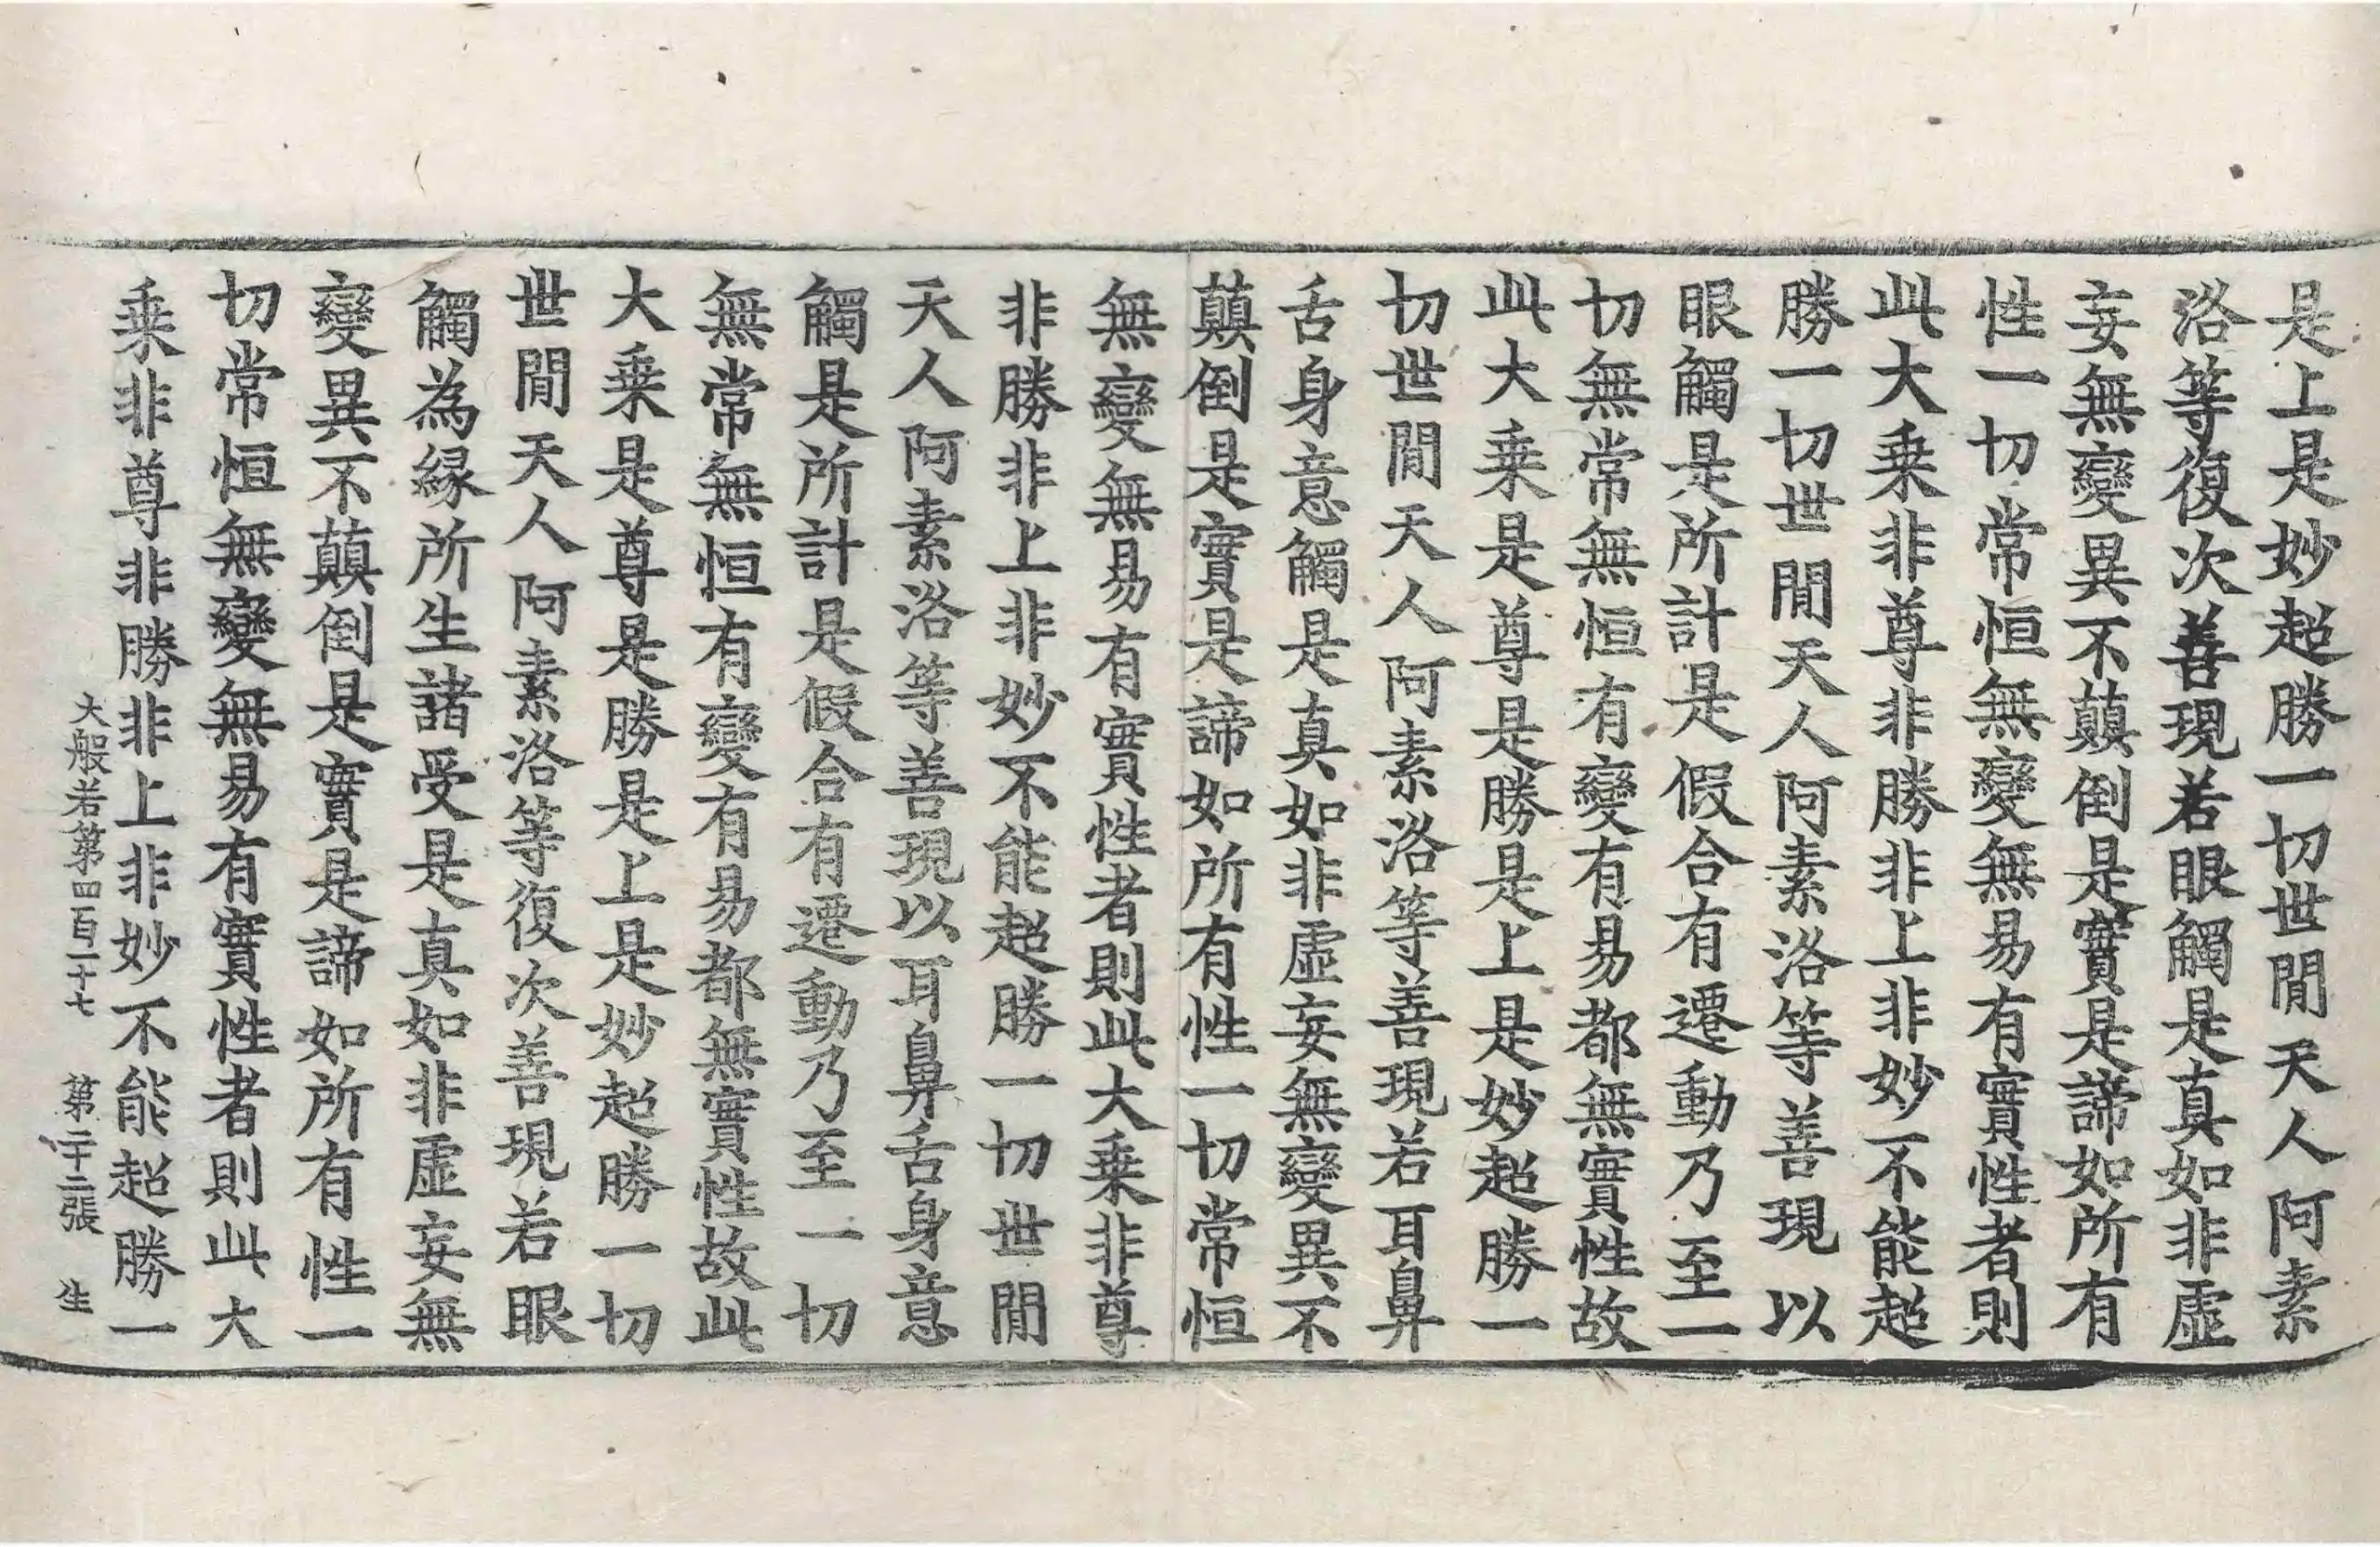 是上是妙超勝一切世間天人阿素
洛等復次善現若眼觸是真如非虛
妄無變異不顛倒是實是諦如所有
性一切常恒無變無易有實性者則
此大乗非尊非勝非上非妙不能超
勝一切世間天人阿素洛等善現以
眼觸是所計是假合有遷動乃至一
切無常無恒有變有易都無實性故
此大乗是尊是勝是上是妙超勝一
切世間天人阿素洛等善現若耳鼻
舌身意觸是真如非虛妄無變異不
顛倒是實是諦如所有性一切常恒
無變無易有實性者則此大乗非尊
非勝非上非妙不能超勝一切世間
天人阿素洛等善現以耳鼻舌身意
觸是所計是假合有遷動乃至一切
無常無恒有變有易都無實性故此
大乗是尊是勝是上是妙超勝一切
世間天人阿素洛等復次善現若眼
觸為縁所生諸受是真如非虛妄無
變異不顛倒是實是諦如所有性一
切常恒無變無易有實性者則此大
乗非尊非勝非上非妙不能超勝一
大般若第四百一十七 第二十二張 生